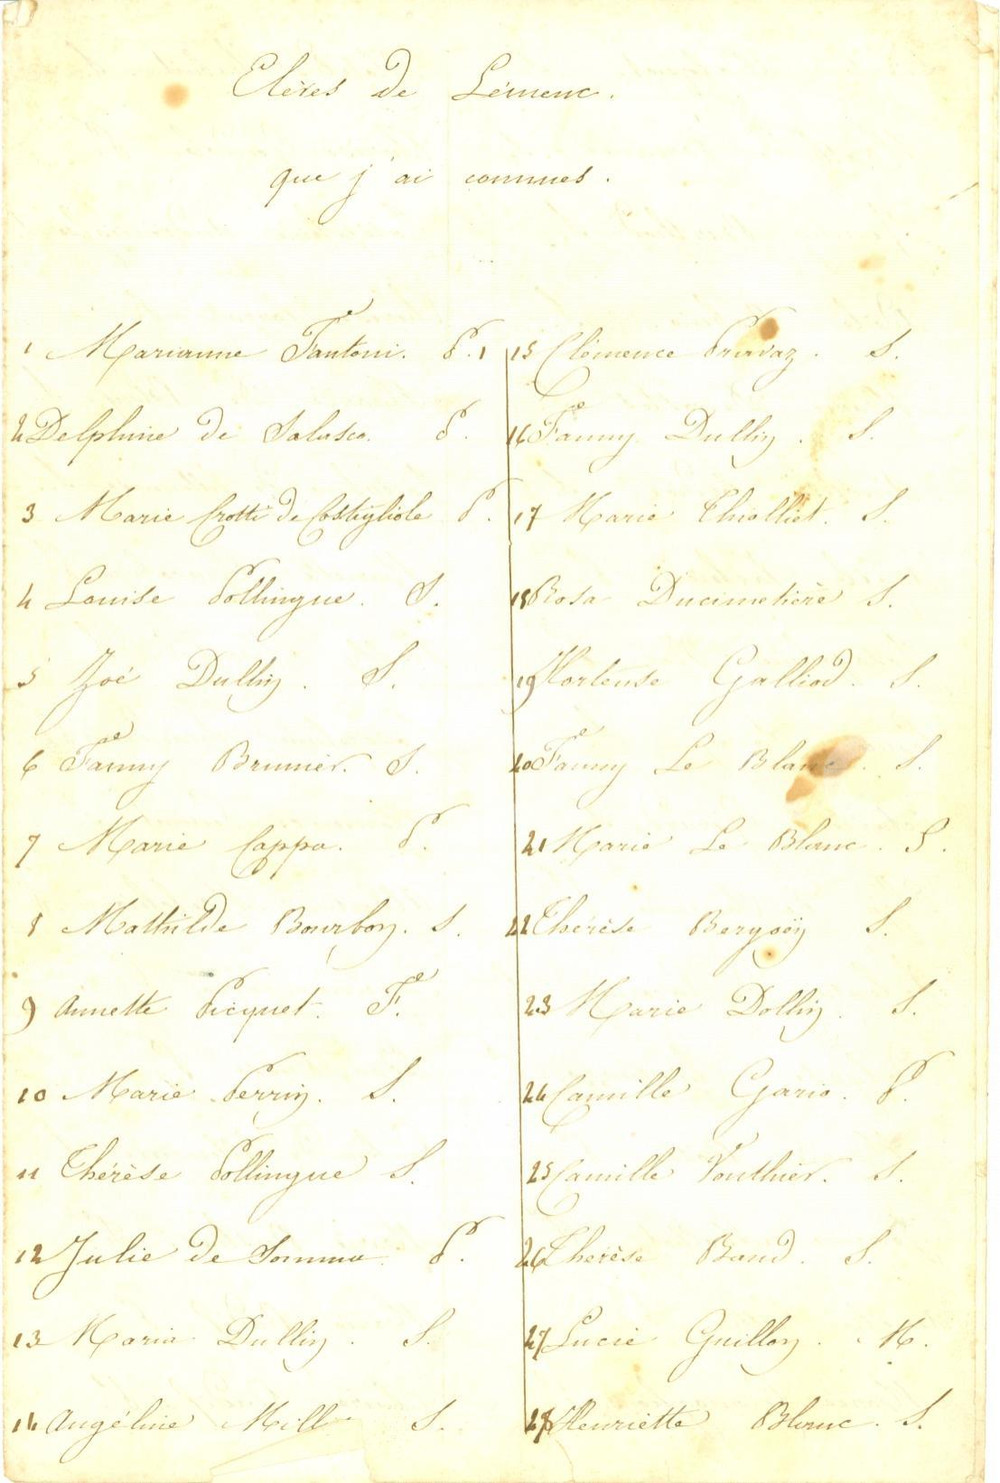 Elèves de Lémenc.
que j'ai connues.
1 Marianne Fantoni. P.
2 Delphine de Salasco. P.
3 Marie Crotti de Costigliole P.
4 Louise Pollingue. S.
5 Zoé Dullin. S.
6 Fanny Brunier. S.
7 Marie Cappa. P.
8 Mathilde Bourbon. S.
9 Annette Picquet. F.
10 Marie Perrin. S.
11 Thérèse Pollingue S.
12 Julie de Somma P.
13 Maria Dullin. S.
14 Angéline Mill S.
15 Clémence Pravaz. S.
16 Fanny Dullin. S.
17 Marie Cholliet. S.
18 Rosa Ducimetière S.
19 Hortense Galliod. S.
20 Fanny Le Blanc. S.
21 Marie Le Blanc. S.
22 Thérèse Bergoëy S.
23 Marie Dollin. S.
24 Camille Gario. P.
25 Camille Vouthier. S.
26 Thérèse Baud. S.
27 Lucie Guillon. M.
28 Henriette Blanc. S.